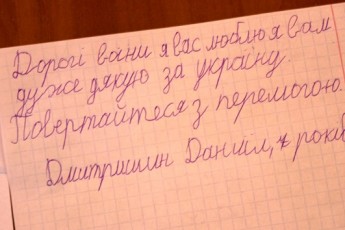 Дорогі воїни я вас люблю я вам
дуже дякую за україну.
Повертайтеся з перемогою.
Дмитришин Даніїл, років